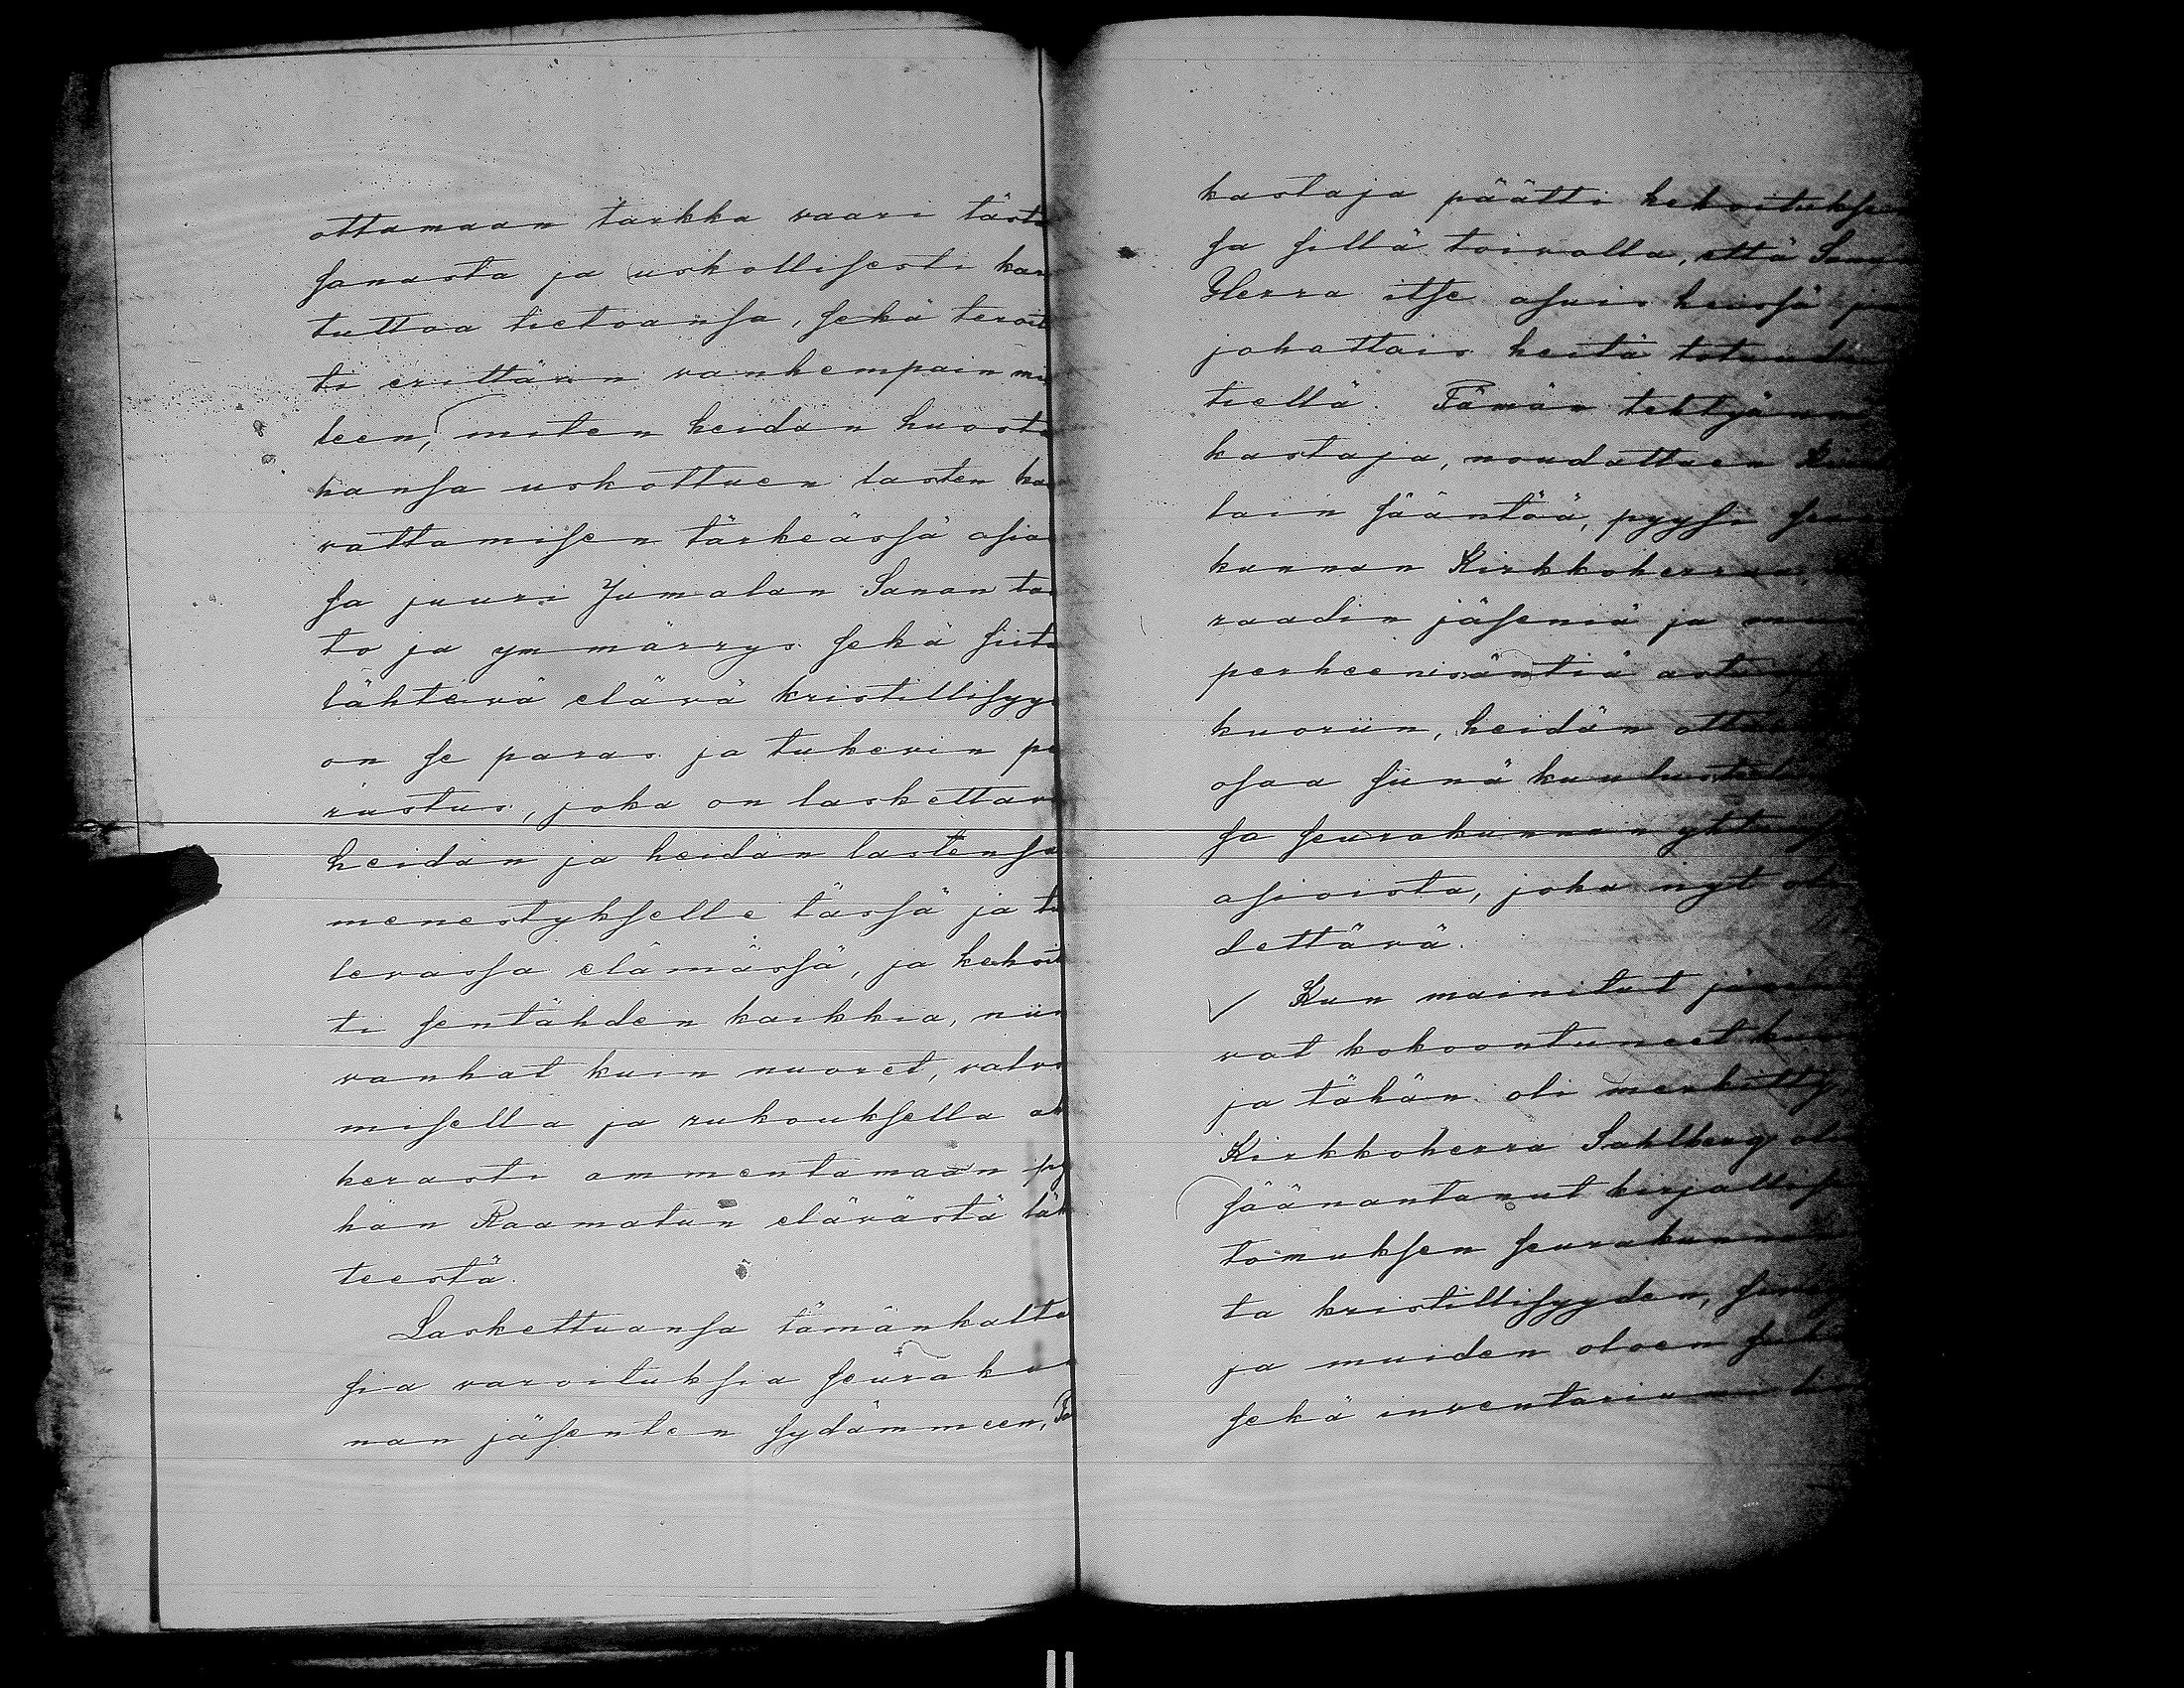 ottamaan tarkka vaari täst
sanasta ja uskollisesti kar
tuttaa tietoansa, sekä teroit
ti erittäin vanhempain mie
leen, miten heidän huosta
hansa uskottuen lasten kas
vattamisen tärkeässä asia
sa juuri Jumalan Sanan tai
to ja ymmärrys sekä siitä
lähtevä elävä kristillisyys
on se paras ja tukevin pe
rustus, joka on laskettava
heidän ja heidän lastensa
menestykselle tässä ja tu
levassa elämässä, ja kehoit
ti sentähden kaikkia, niin
vanhat kuin nuoret, valvo
misella ja rukouksella ah
kerasti ammentamaan py
hän Raamatun elävästä läh
teestä.
Laskettuansa tämänkalta
sia varoituksia seurakun
nan jäsenten sydämmeen, Ta
kastaja päätti kehoituksen
sa sillä toivolla, että
Herra itse asuis heissä ja
johattais heitä totuuden
tiellä. Tämän tehtyämme
kastaja, noudattaen Kirk
lain sääntöä, pyysi seur
kunnan Kirkkoherraa,
raadin jäseniä ja muu
perheenisäntiä astum
kuoriin, heidän ottaa
osaa siinä kuulustelu
sa seurakunnan yhteis
asioista, joka nyt oli
dettävä.
Kun mainitut
vat kokoontuneet kuor
ja tähän oli merkitty
Kirkkoherra Sahlberg oli
säänantanut kirjallise
tomuksen seurakunnan
ta kristillisyyden, sivey
ja muiden oloen suh
sekä inventariumi